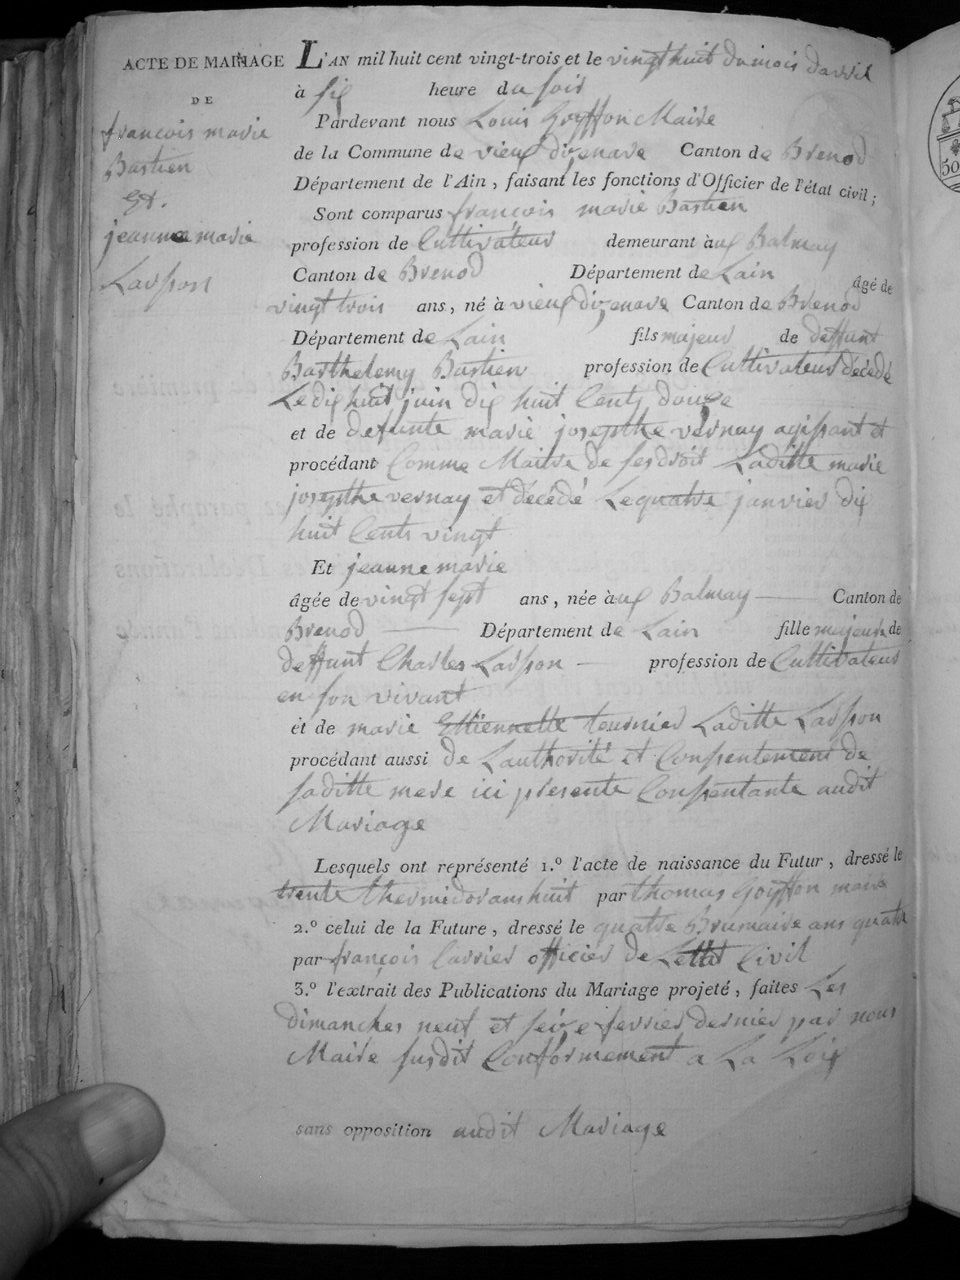 ACTE DE MARIAGE
DE
françois marie
Bastien
Et.
jeanne marie
Lasson
L'AN mil huit cent vingt-trois et le vingt huit du mois davril
à six heure du soir
Pardevant nous Louis Goyffon Maire
de la Commune de vieux dizenave Canton de Brenod
Département de l'Ain, faisant les fonctions d'Officier de l'état civil;
Sont comparus françois marie Bastien
profession de Cultivateur demeurant à ux Balmay
Canton de Brenod Département de Lain âgé de
vingt trois ans, né à vieux dizenave Canton de Brenod
Département de Lain fils majeur de deffunt
Barthelemy Bastien profession de Cultivateur décédé
Le dix huit juin dix huit Cents douze
et de defunte marie josepthe vernay agissant et
procédant Comme Maitre de ses droit Laditte marie
josepthe vernay et décédé Le quatre janvier dix
huit Cents vingt
Et jeanne marie
âgée de vingt sept ans, née à ux Balmay Canton de
Brenod Département de Lain fille majeure de
deffunt Charles Lasson profession de Cultivateur
en son vivant
et de marie Ettiennette tournier Laditte Lasson
procédant aussi de Lauthorité et Consentement de
saditte mere ici présente Consentante audit
Mariage
Lesquels ont représenté 1.º l'acte de naissance du Futur, dressé le
trente thermidor ans huit par thomas Goyffon maire
2.º celui de la Future, dressé le quatre Brumaire ans quatre
par françois Carrier officier de Lettat Civil
3.º l'extrait des Publications du Mariage projeté, faites Les
dimanches neuf et seize fevrier dernier par nous
Maire susdit Conformement a La Loix
sans opposition audit Mariage
50